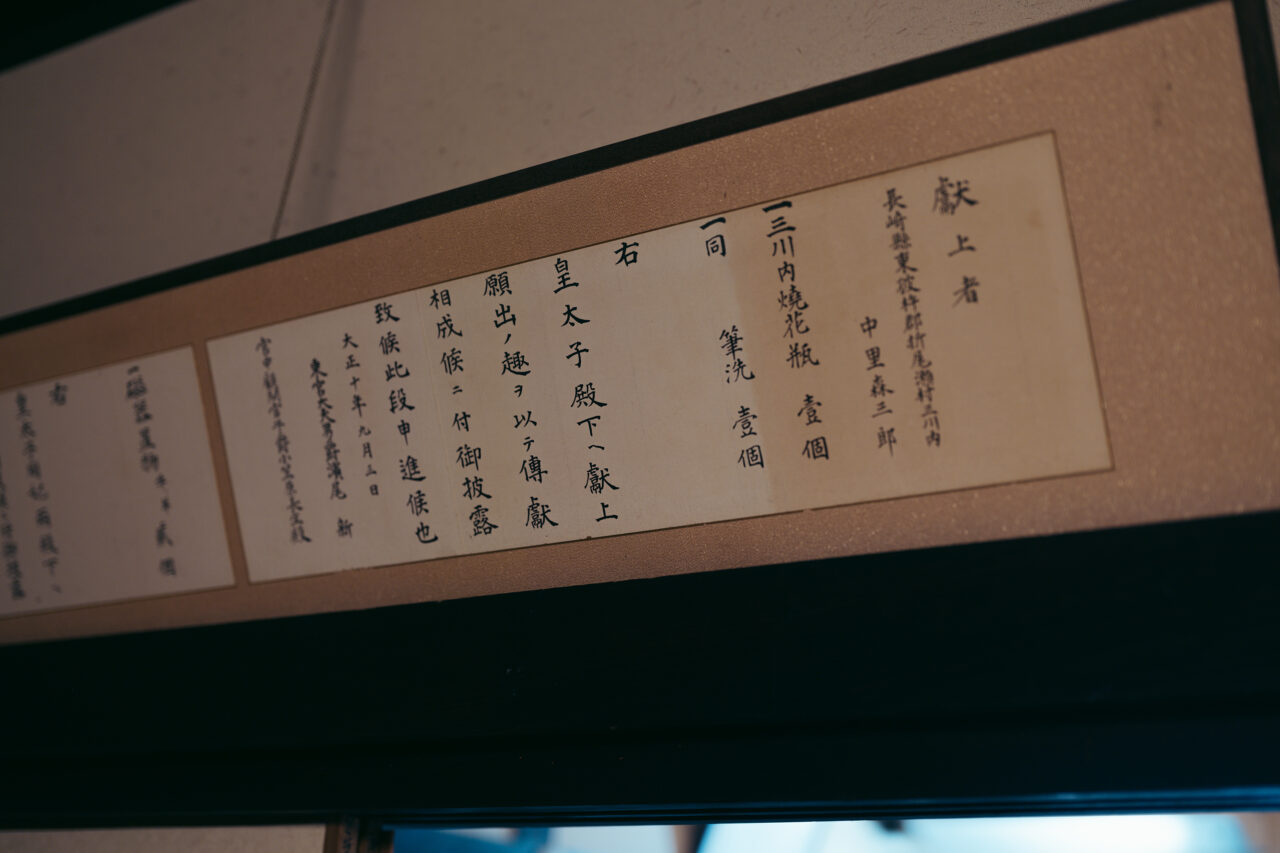 獻上者
長崎縣東彼杵郡折尾瀬村三川内
中里森三郎
一三川内燒花瓶 壹個
一同 筆洗 壹個
右
皇太子殿下へ獻上
願出ノ趣ヲ以テ傳獻
相成候ニ付御披露
致候此段申進候也
大正十年九月三日
東宮大夫男爵濱尾 新
宮中顧問官子爵小笠原長生殿
一磁器置物 貳個
右